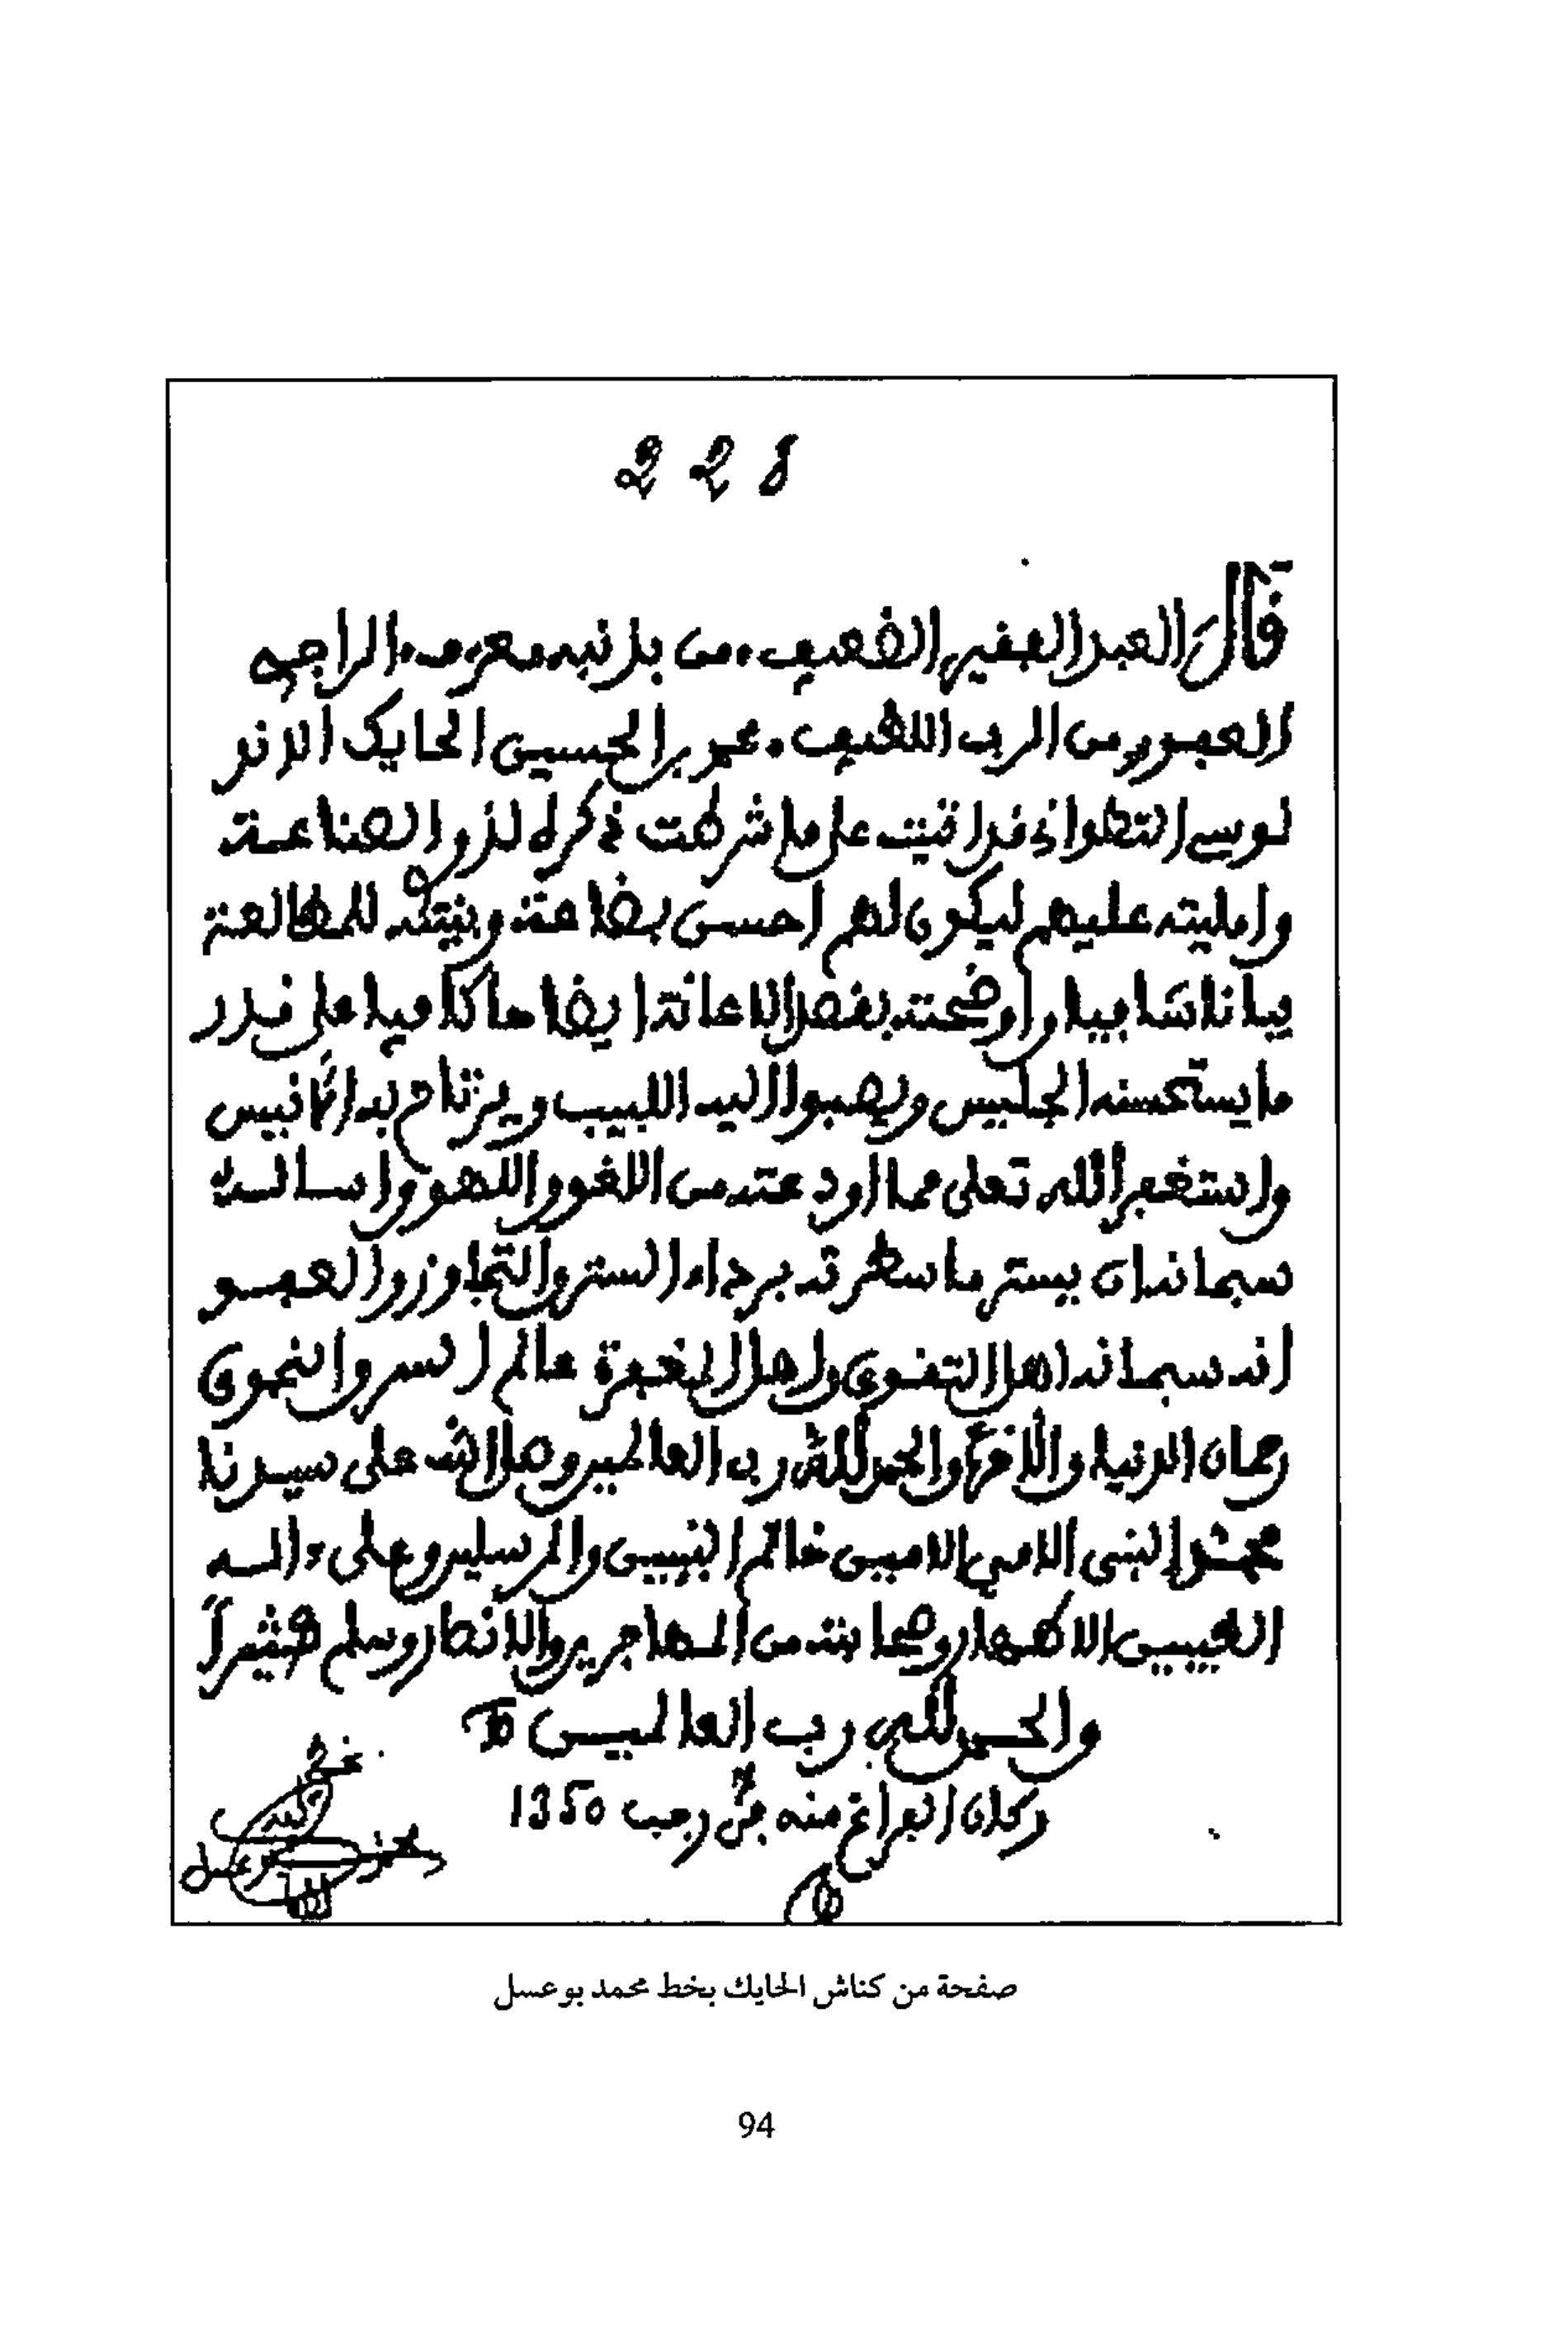 228
قال العبد الفقير الضعيف، من بذنبه معترف، الراجي
العفو من الرب اللطيف، محمد بن الحسين الحايك الاند
لوسي التطواني قد اتيت على ما شرطت ذكره لذو الصناعة
وامليته عليهم ليكون لهم احسن بضاعة وبينته للمطالعة
بيانا شافيا واوضحته بفضل الاعانة ايضاحا كافيا على قدر
ما يستحسنه الجليس ويصبوا اليه اللبيب ويرتاح به الانيس
واستغفر الله تعلى مما اودعته من اللغو واللهو واسالــه
سبحانه ان يستر ما سطرته برداء الستر والتجاوز والعفــو
انه سبحانه اهل التقوى واهل المغفرة عالم السر والنجوى
رحمان الدنيا والاخرة والحمد لله رب العالمين وصلى الله على سيدنا
محمد النبي الامي الامين خاتم النبيين والمرسلين وعلى ءالــه
الطيبين الاطهار وصحابته من المهاجرين والانصار وسلم كثيراً
والحمد لله رب العالميــن
وكان الفراغ منه في رجب 1350
محمد بوعسل
صفحة من كناش الحايك بخط محمد بوعسل
94